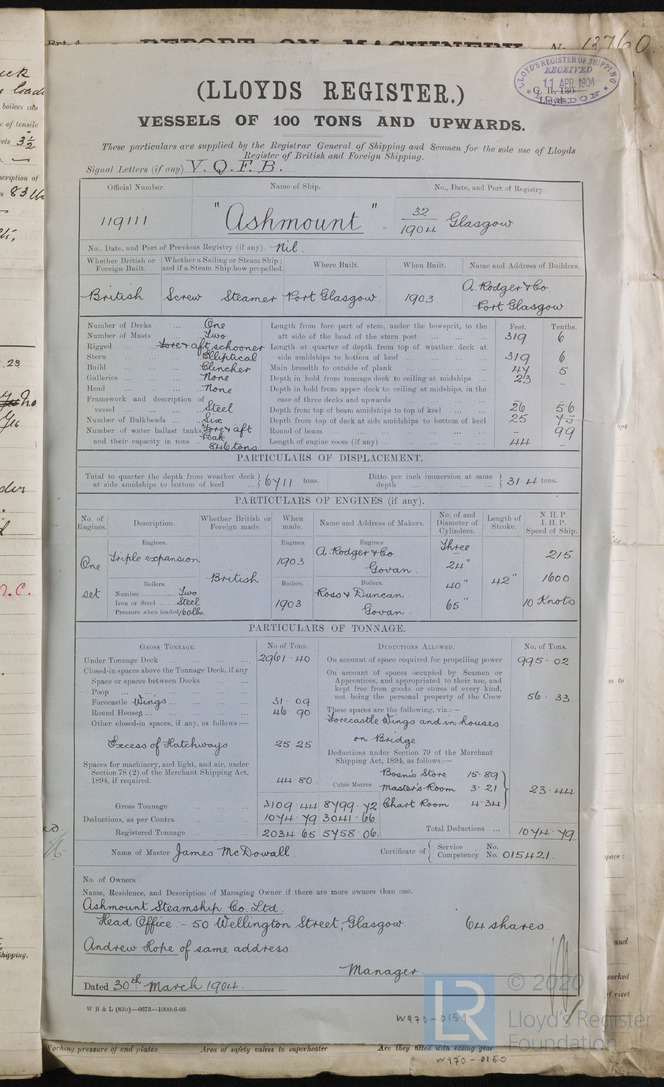 REPORT ON MACHINERY No. 13760
LLOYD'S REGISTER OF SHIPPING
RECEIVED
11 APR 1904
LONDON
(LLOYDS REGISTER.)
VESSELS OF 100 TONS AND UPWARDS.
These particulars are supplied by the Registrar General of Shipping and Seamen for the sole use of Lloyds
Register of British and Foreign Shipping.
Signal Letters (if any) V. Q. F. B.
Official Number. Name of Ship. No., Date, and Port of Registry.
119111 "Ashmount" 32/1904 Glasgow
No., Date, and Port of Previous Registry (if any). Nil.
Whether British or Foreign Built. Whether a Sailing or Steam Ship; and if a Steam Ship how propelled. Where Built. When Built. Name and Address of Builders.
British Screw Steamer Port Glasgow 1903 A. Rodger & Co. Port Glasgow
Feet. Tenths.
Number of Decks ... One Length from fore part of stem, under the bowsprit, to the
Number of Masts ... Two aft side of the head of the stern post ... 319 6
Rigged ... fore & aft schooner Length at quarter of depth from top of weather deck at
Stern ... Elliptical side amidships to bottom of keel ... 319 6
Build ... Clincher Main breadth to outside of plank ... 47 5
Galleries ... None Depth in hold from tonnage deck to ceiling at midships ... 23 -
Head ... None Depth in hold from upper deck to ceiling at midships, in the
Framework and description of case of three decks and upwards ... -
vessel ... Steel Depth from top of beam amidships to top of keel ... 26 56
Number of Bulkheads ... Six Depth from top of deck at side amidships to bottom of keel 25 75
Number of water ballast tanks, Fore & aft Round of beam ... - 99
and their capacity in tons Peak 846 tons Length of engine room (if any) ... 44 -
PARTICULARS OF DISPLACEMENT.
Total to quarter the depth from weather deck at side amidships to bottom of keel } 6711 tons. Ditto per inch immersion at same depth ... } 31.4 tons.
PARTICULARS OF ENGINES (if any).
No. of Engines. Description. Whether British or Foreign made. When made. Name and Address of Makers. No. of and Diameter of Cylinders. Length of Stroke. N. H. P. I. H. P. Speed of Ship.
Engines. Engines. Engines. Three
One Triple expansion British 1903 A. Rodger & Co. Govan. 24" 215
set Boilers. Boilers. Boilers. 40" 42" 1600
Number ... Two Ross & Duncan
Iron or Steel ... Steel 1903 Govan. 65" 10 Knots
Pressure when loaded 160 lbs.
PARTICULARS OF TONNAGE.
GROSS TONNAGE. No of Tons. DEDUCTIONS ALLOWED. No. of Tons.
Under Tonnage Deck ... 2961.40 On account of space required for propelling power 995.02
Closed-in spaces above the Tonnage Deck, if any On account of spaces occupied by Seamen or
Space or spaces between Decks ... Apprentices, and appropriated to their use, and
Poop ... kept free from goods or stores of every kind,
Forecastle Wings ... 31.09 not being the personal property of the Crew 56.33
Round Houses ... 46.90 These spaces are the following, viz.:—
Other closed-in spaces, if any, as follows:— Forecastle Wings and in houses
on Bridge
Excess of Hatchways 25.25 Deductions under Section 79 of the Merchant
Shipping Act, 1894, as follows:—
Spaces for machinery, and light, and air, under Bosn's Store 15.89
Section 78 (2) of the Merchant Shipping Act, 1894, if required. 44.80 Cubic Metres Master's Room 3.21 } 23.44
Gross Tonnage 3109.44 8799.72 Chart Room 4.34
Deductions, as per Contra ... 1074.79 3041.66
Registered Tonnage ... 2034.65 5758.06 Total Deductions ... 1074.79
Name of Master James McDowall. Certificate of { Service No. Competency No. 015421.
No. of Owners
Name, Residence, and Description of Managing Owner if there are more owners than one.
Ashmount Steamship Co. Ltd.
Head Office - 50 Wellington Street, Glasgow 64 shares
Andrew Hope of same address
Manager
Dated 30th March 1904.
W B & L (83o)—6678—1000-6-03
W970-0159
© 2020
LR
Lloyd's Register
Foundation
Working pressure of end plates Area of safety valves to superheater Are they fitted with easing gear
W970-0160